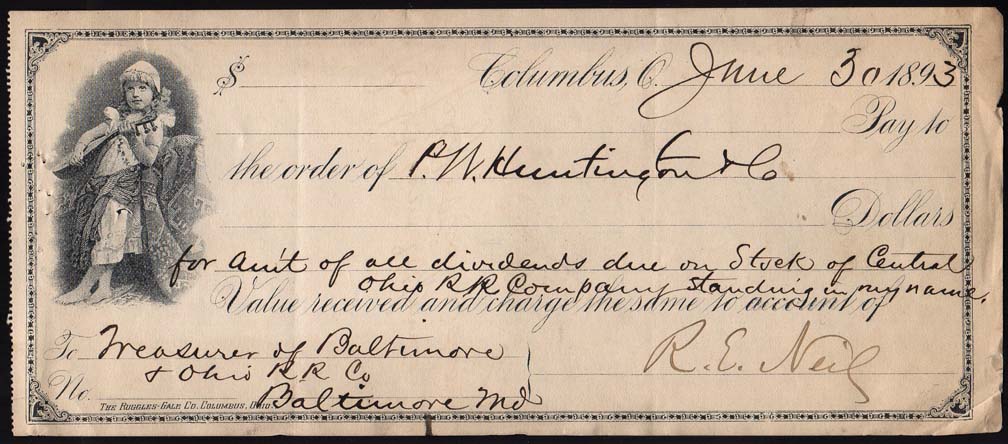 $ Columbus, O. June 30 1893
Pay to
the order of P. W. Huntington & Co
Dollars
for am't of all dividends due on Stock of Central
Ohio RR Company standing in my name.
Value received and charge the same to account of
To Treasurer of Baltimore
& Ohio RR Co
R. E. Neil
No. Baltimore Md
THE RUGGLES-GALE CO. COLUMBUS, OHIO